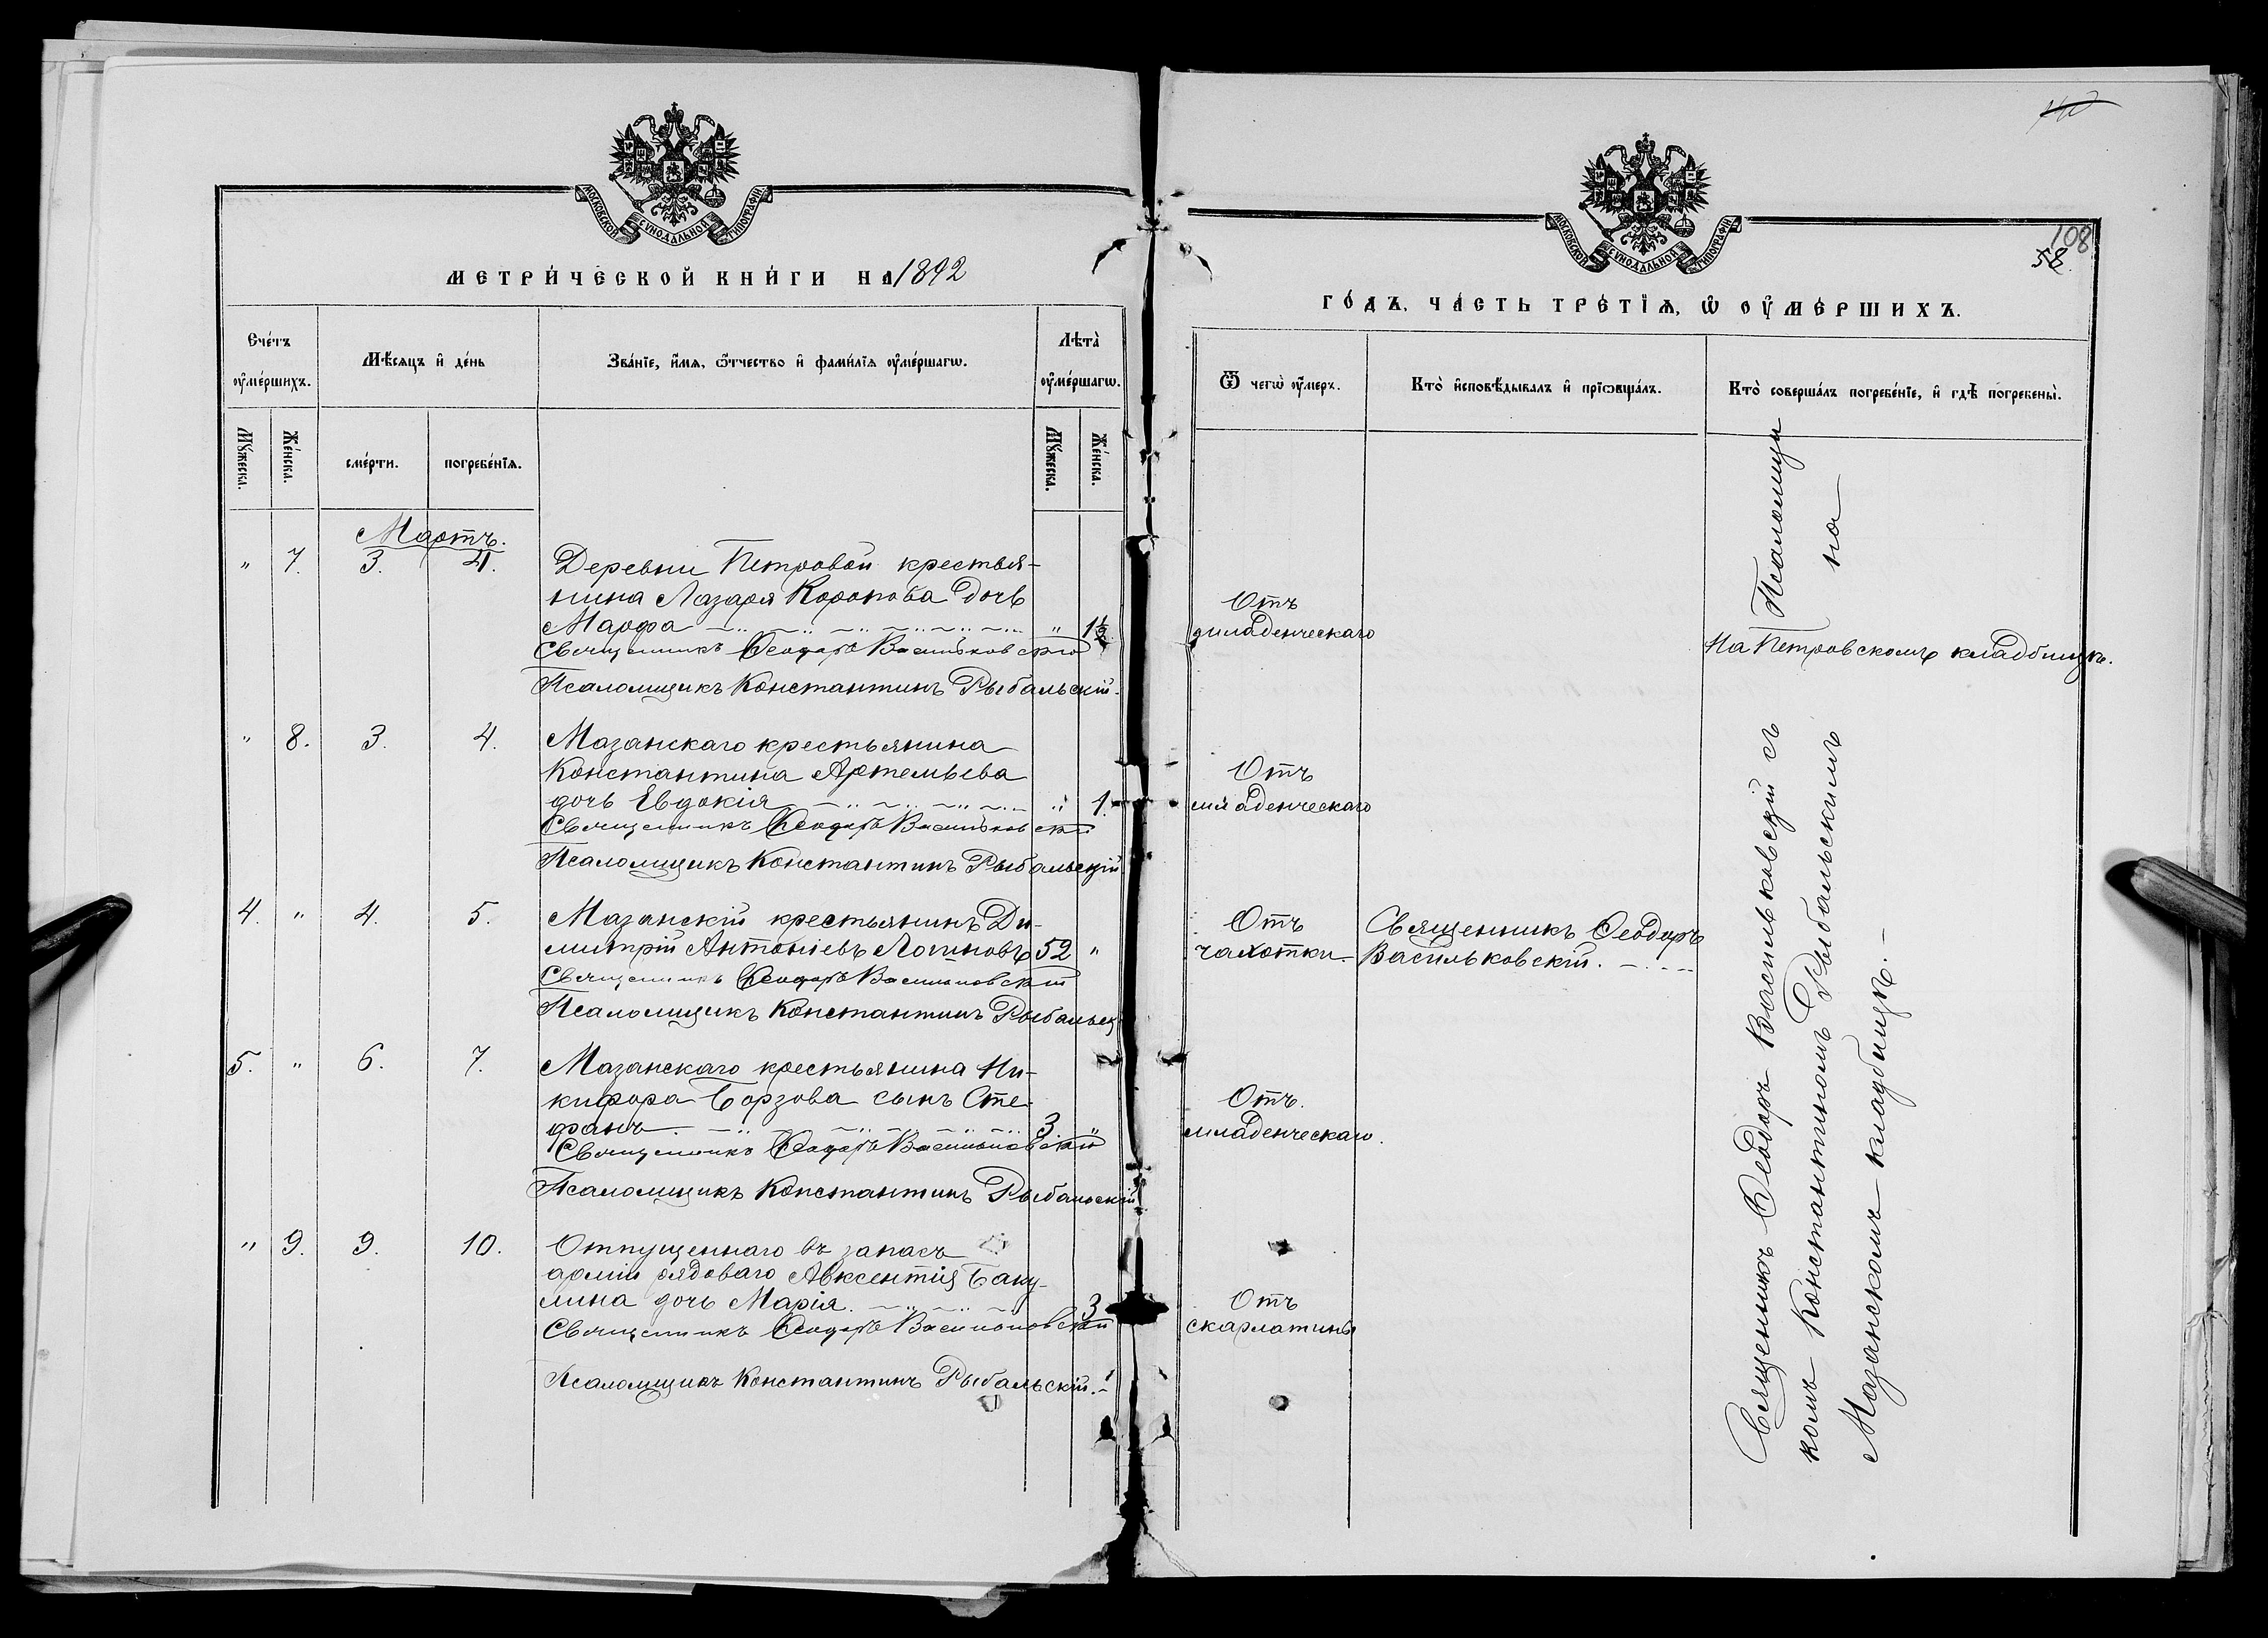 МОСКОВСКОЙ СѴНОДАЛЬНОЙ ТИПОГРАФІИ
МЕТРИ́ЧЕСКОЙ КНИ́ГИ НА 1892
Сче́тъ оу҆ме́ршихъ.
Мѣ́сяцъ и҆ де́нь
Зва́нїе, и҆́мѧ, ѻ҆́тчество и҆ фами́лїѧ оу҆ме́ршагѡ.
Лѣта̀ оу҆ме́ршагѡ.
Мꙋ́жеска. Же́нска. сме́рти. погребе́нїѧ. Мꙋ́жеска. Же́нска.
Мартъ.
" 7. 3. 4. Деревни Петровой крестья-
нина Лазаря Коропова дочь
Марѳа " 1½
Священникъ Ѳеодоръ Васильковскій
Псаломщикъ Константинъ Рыбальскій.
" 8. 3. 4. Мазанскаго крестьянина
Константина Артемьева
дочь Евдокія " 1.
Священникъ Ѳеодоръ Васильковскій
Псаломщикъ Константинъ Рыбальскій
4. " 4. 5. Мазанскій крестьянинъ Ди-
митрій Антоніевъ Логиновъ 52 "
Священникъ Ѳеодоръ Васильковскій
Псаломщикъ Константинъ Рыбальск
5. " 6. 7. Мазанскаго крестьянина Ни-
кифора Борзова сынъ Сте-
фанъ 3 "
Священникъ Ѳеодоръ Васильковскій
Псаломщикъ Константинъ Рыбальскій
" 9. 9. 10. Отпущеннаго въ запасъ
арміи рядоваго Авксентія Баку-
лина дочь Марія. 3
Священникъ Ѳеодоръ Васильковскій
Псаломщикъ Константинъ Рыбальскій.
МОСКОВСКОЙ СѴНОДАЛЬНОЙ ТИПОГРАФІИ
108
58.
ГО́ДЪ, ЧА́СТЬ ТРЕ́ТЇѦ, Ѡ҆ ОУ҆МЕ́РШИХЪ.
Ѿ чегѡ̀ оу҆́меръ.
Кто̀ и҆сповѣ́дывалъ и҆ прїѡбща́лъ.
Кто̀ соверша́лъ погребе́нїе, и҆ гдѣ̀ погребены̀.
Отъ
младенческаго
На Петровскомъ кладбищѣ.
Отъ
младенческаго
Отъ
чахотки.
Священникъ Ѳеодоръ
Васильковскій.
Отъ.
младенческаго.
Отъ
скарлатины
Священникъ Ѳеодоръ Васильковскій съ Псаломщи
комъ Константиномъ Рыбальскимъ на
Мазанскомъ кладбищѣ.